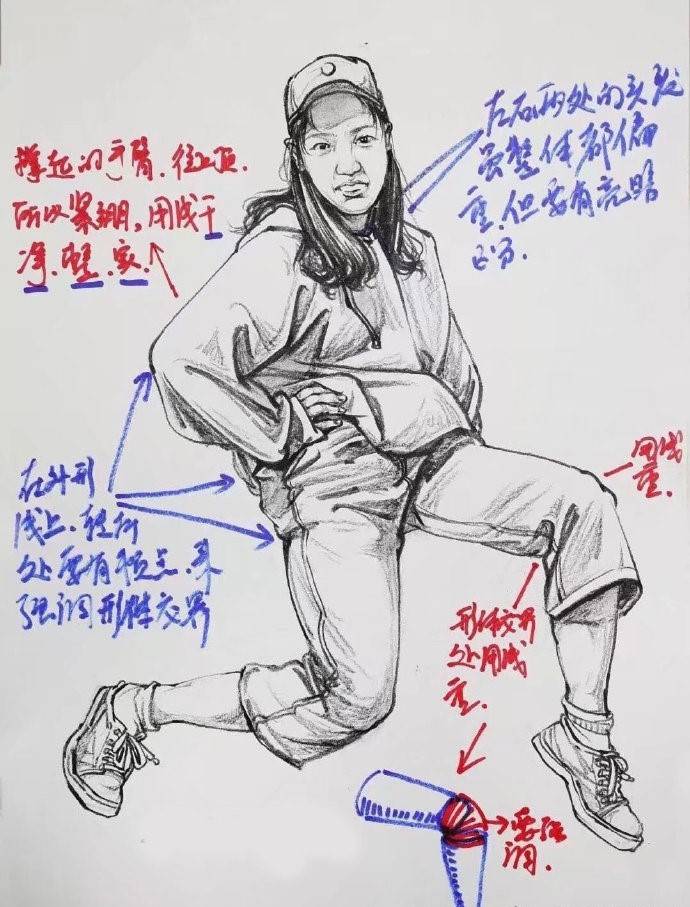 撑起的手臂.往上顶.
所以紧绷。用线干
净.硬.实.
左右两处的头发
虽整体都偏
重.但要有亮暗
区分.
用线
重.
在外形
线上.转折
处要有顿点.来
强调形体交界
形体交界
处用线
重.
要强
调.